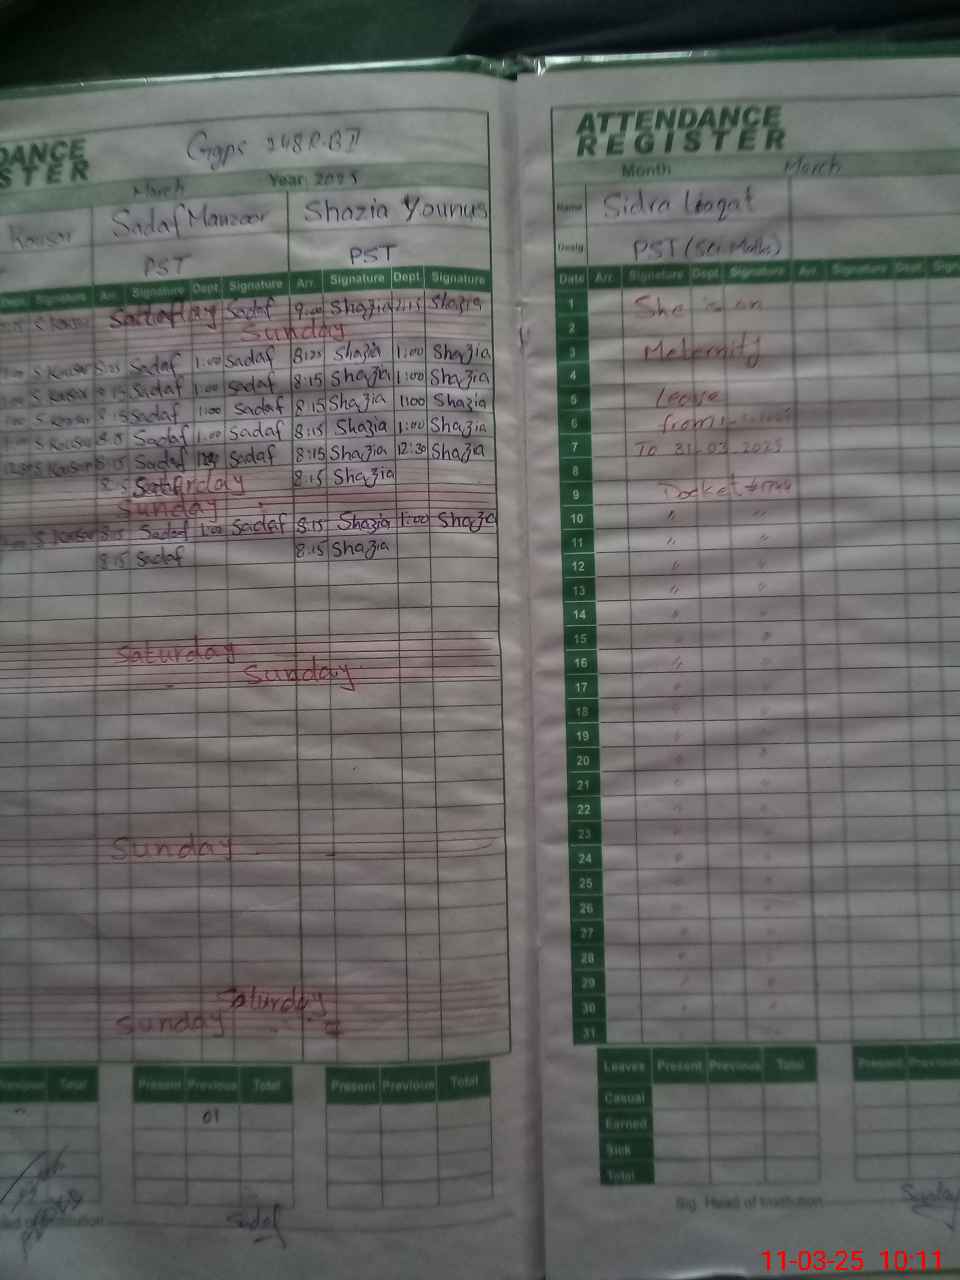 DANCE
STER
Ggps 248 R.B II
March Year: 2025
Kousar Sadaf Manzoor Shazia Younus
PST PST
Dept. Signature Arr. Signature Dept. Signature Arr. Signature Dept. Signature
S. Kousar Sadaf Sadaf 9:00 Shazia 12:15 Shazia
Sunday
S. Kousar Sadaf 1:00 Sadaf Shazia 1:00 Shazia
S. Kousar 8:15 Sadaf 1:00 Sadaf 8:15 Shazia 1:00 Shazia
S. Kousar 8:15 Sadaf 1:00 Sadaf 8:15 Shazia 1:00 Shazia
S. Kousar 8:15 Sadaf 1:00 Sadaf 8:15 Shazia 1:00 Shazia
12:30 S. Kousar 8:15 Sadaf 12:30 Sadaf 8:15 Shazia 12:30 Shazia
8:15 Saturday 8:15 Shazia
Sunday
S. Kousar 8:15 Sadaf 1:00 Sadaf 8:15 Shazia 1:00 Shazia
8:15 Sadaf 8:15 Shazia
Saturday
Sunday
Sunday
Saturday
Sunday
Previous Total Present Previous Total Present Previous Total
01
Sadaf
ATTENDANCE
REGISTER
Month March
Name Sidra Liaqat
Desig. PST (Sci. Maths)
Date Arr. Signature Dept. Signature Arr. Signature Dept. Sign
1 She is on
2
3 Meternity
4
5 Leave
6 from
7 To 31-03-2025
8
9 Docket
10 " "
11 " "
12 " "
13 " "
14 " "
15 " "
16 " "
17 " "
18 " "
19 " "
20 " "
21 " "
22 " "
23 " "
24 " "
25 " "
26 " "
27 " "
28 " "
29 " "
30 " "
31
Leaves Present Previous Total Present Previous
Casual
Earned
Sick
Total
Sig. Head of Institution
11-03-25 10:11